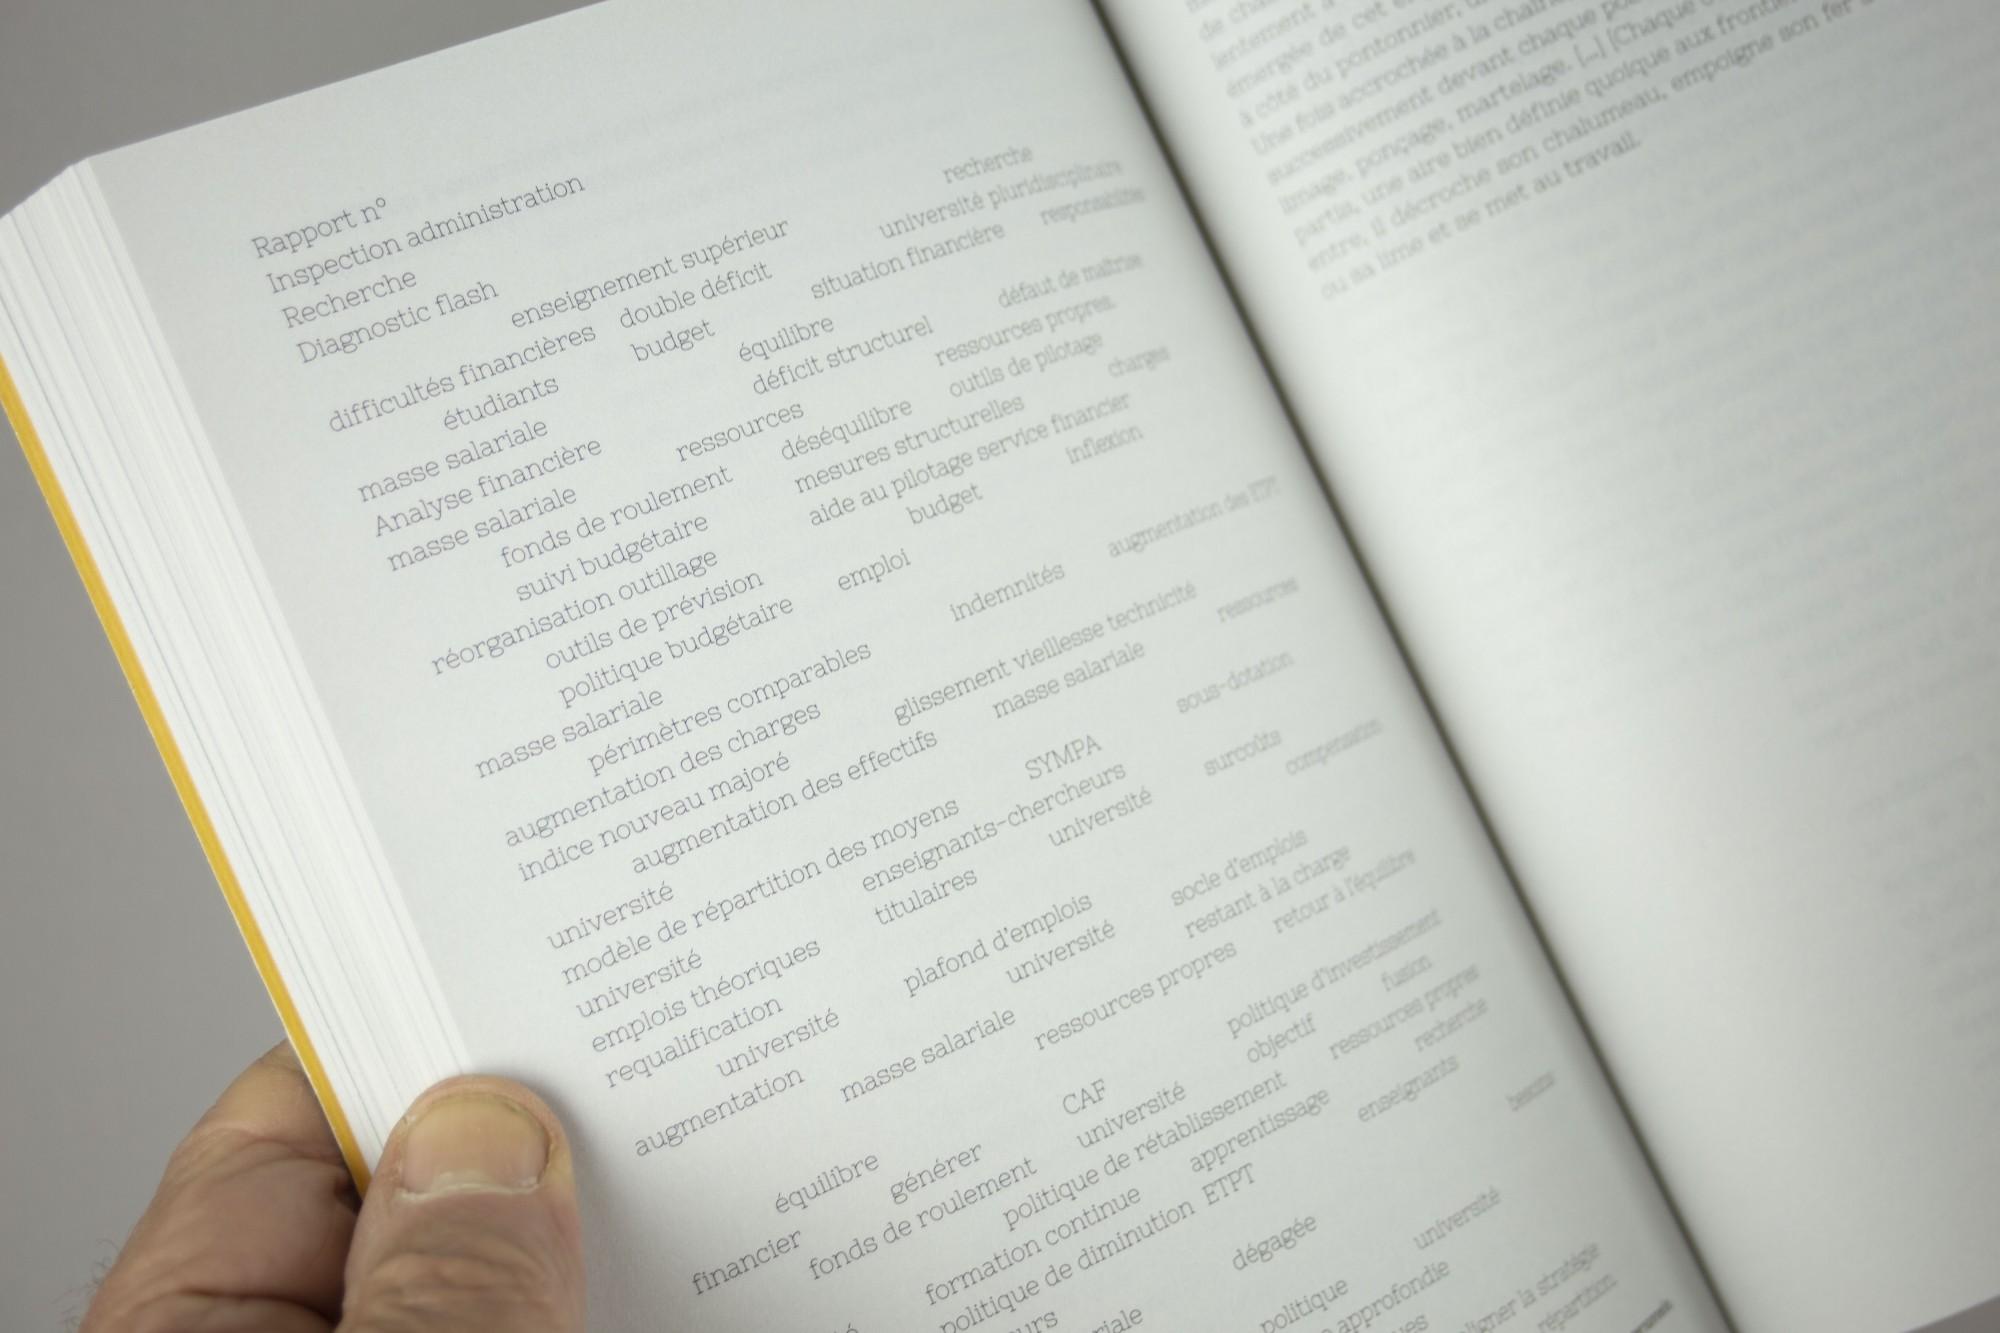 Rapport n°
Inspection administration
Recherche
Diagnostic flash
enseignement supérieur recherche
difficultés financières double déficit université pluridisciplinaire
étudiants budget situation financière responsabilités
masse salariale équilibre
Analyse financière déficit structurel défaut de maîtrise
masse salariale ressources ressources propres
fonds de roulement déséquilibre outils de pilotage
suivi budgétaire mesures structurelles charges
réorganisation outillage aide au pilotage service financier
outils de prévision budget inflexion
politique budgétaire emploi
masse salariale
périmètres comparables indemnités augmentation des ETPT
augmentation des charges
indice nouveau majoré glissement vieillesse technicité
augmentation des effectifs masse salariale ressources
université
modèle de répartition des moyens SYMPA sous-dotation
université enseignants-chercheurs
emplois théoriques titulaires université surcoûts
requalification compensation
université plafond d'emplois
augmentation université socle d'emplois
masse salariale restant à la charge
ressources propres retour à l'équilibre
équilibre
financier générer CAF politique d'investissement
fonds de roulement université objectif fusion
politique de rétablissement ressources propres
formation continue apprentissage recherche
politique de diminution ETPT enseignants
dégagée besoins
politique université
approfondie
la stratégie
répartition
lentement à
émergée de cet
à côté du pontonnier,
Une fois accrochée à la chaîne
successivement devant chaque
limage, ponçage, martelage. […] [Chaque
partis, une aire bien définie quoique aux
entre, il décroche son chalumeau, empoigne son fer
ou sa lime et se met au travail.